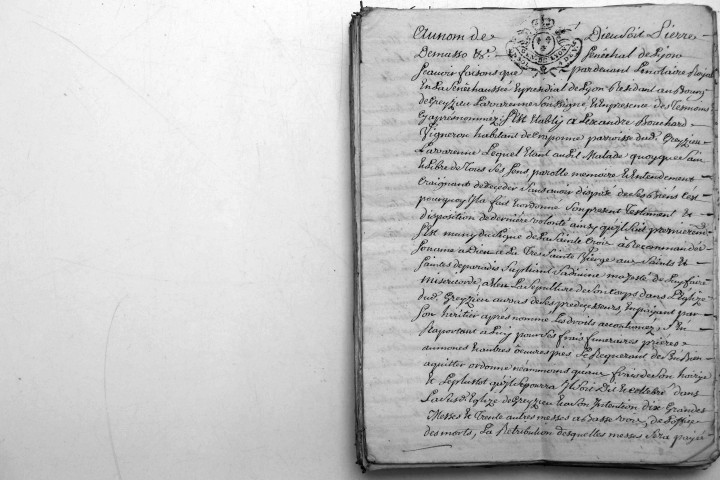 Au nom de Dieu soit Pierre
Demasso &c. Senéchal de Lyon
scavoir faisons que pardevant Le notaire Royal
En La Sénéchaussée Et presidial de Lyon Residant au Bourg
de Greyzieu Lavarenne soussigné, & En presence des Temoins
Cy apres nommez; s'Est Etably alexandre Bouchard
Vigneron habitant de Cimponne parroisse dud. Greyzieu
Lavarenne Lequel Etant au Lit Malade quoyque sain
& Libre de Tous ses sens parolle memoire & Entendement
Craignant de deceder sans avoir disposé de ses Biens C'est
pourquoy Il a fait & ordonné son present Testament &
disposition de derniere Volonté ainsy qu'Il suit premierement
s'Est muny du signe de La sainte Croix a Recommandé
son ame a Dieu a La Tres sainte Vierge aux saints &
saintes de paradis supliant sa divine majesté de Luy faire
misericorde, a Eleu La sepulture de son Corps dans L'Eglize
dud. Greyzieu au vas de ses predecesseurs, En payant par
son heritier aprés nommé Les droits accoutumez, s'En
Raportant a Luy pour ses frais funeraires prieres
aumones & autres oeuvres pies, Le Requerant de s'En Bien
aquitter ordonne neammoins qu'aux frais de son hoirie
& Le plustot qu'Il se pourra Il soit Dit & celebré dans
La susd. Eglize de Greyzieu & a son Intention dix Grandes
Messes & Trente autres messes a Basse voix de L'office
des morts, La Retribution desquelles messes sera payée